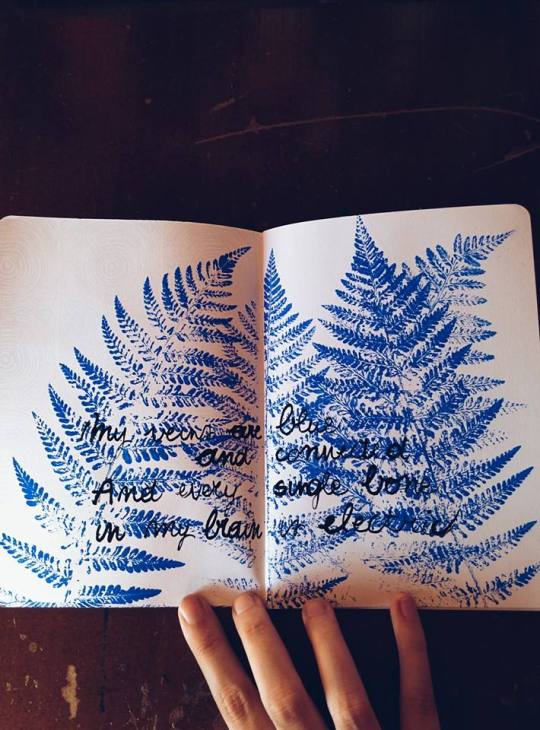 My veins are blue
and connected
And every single bone
in my brain is electric